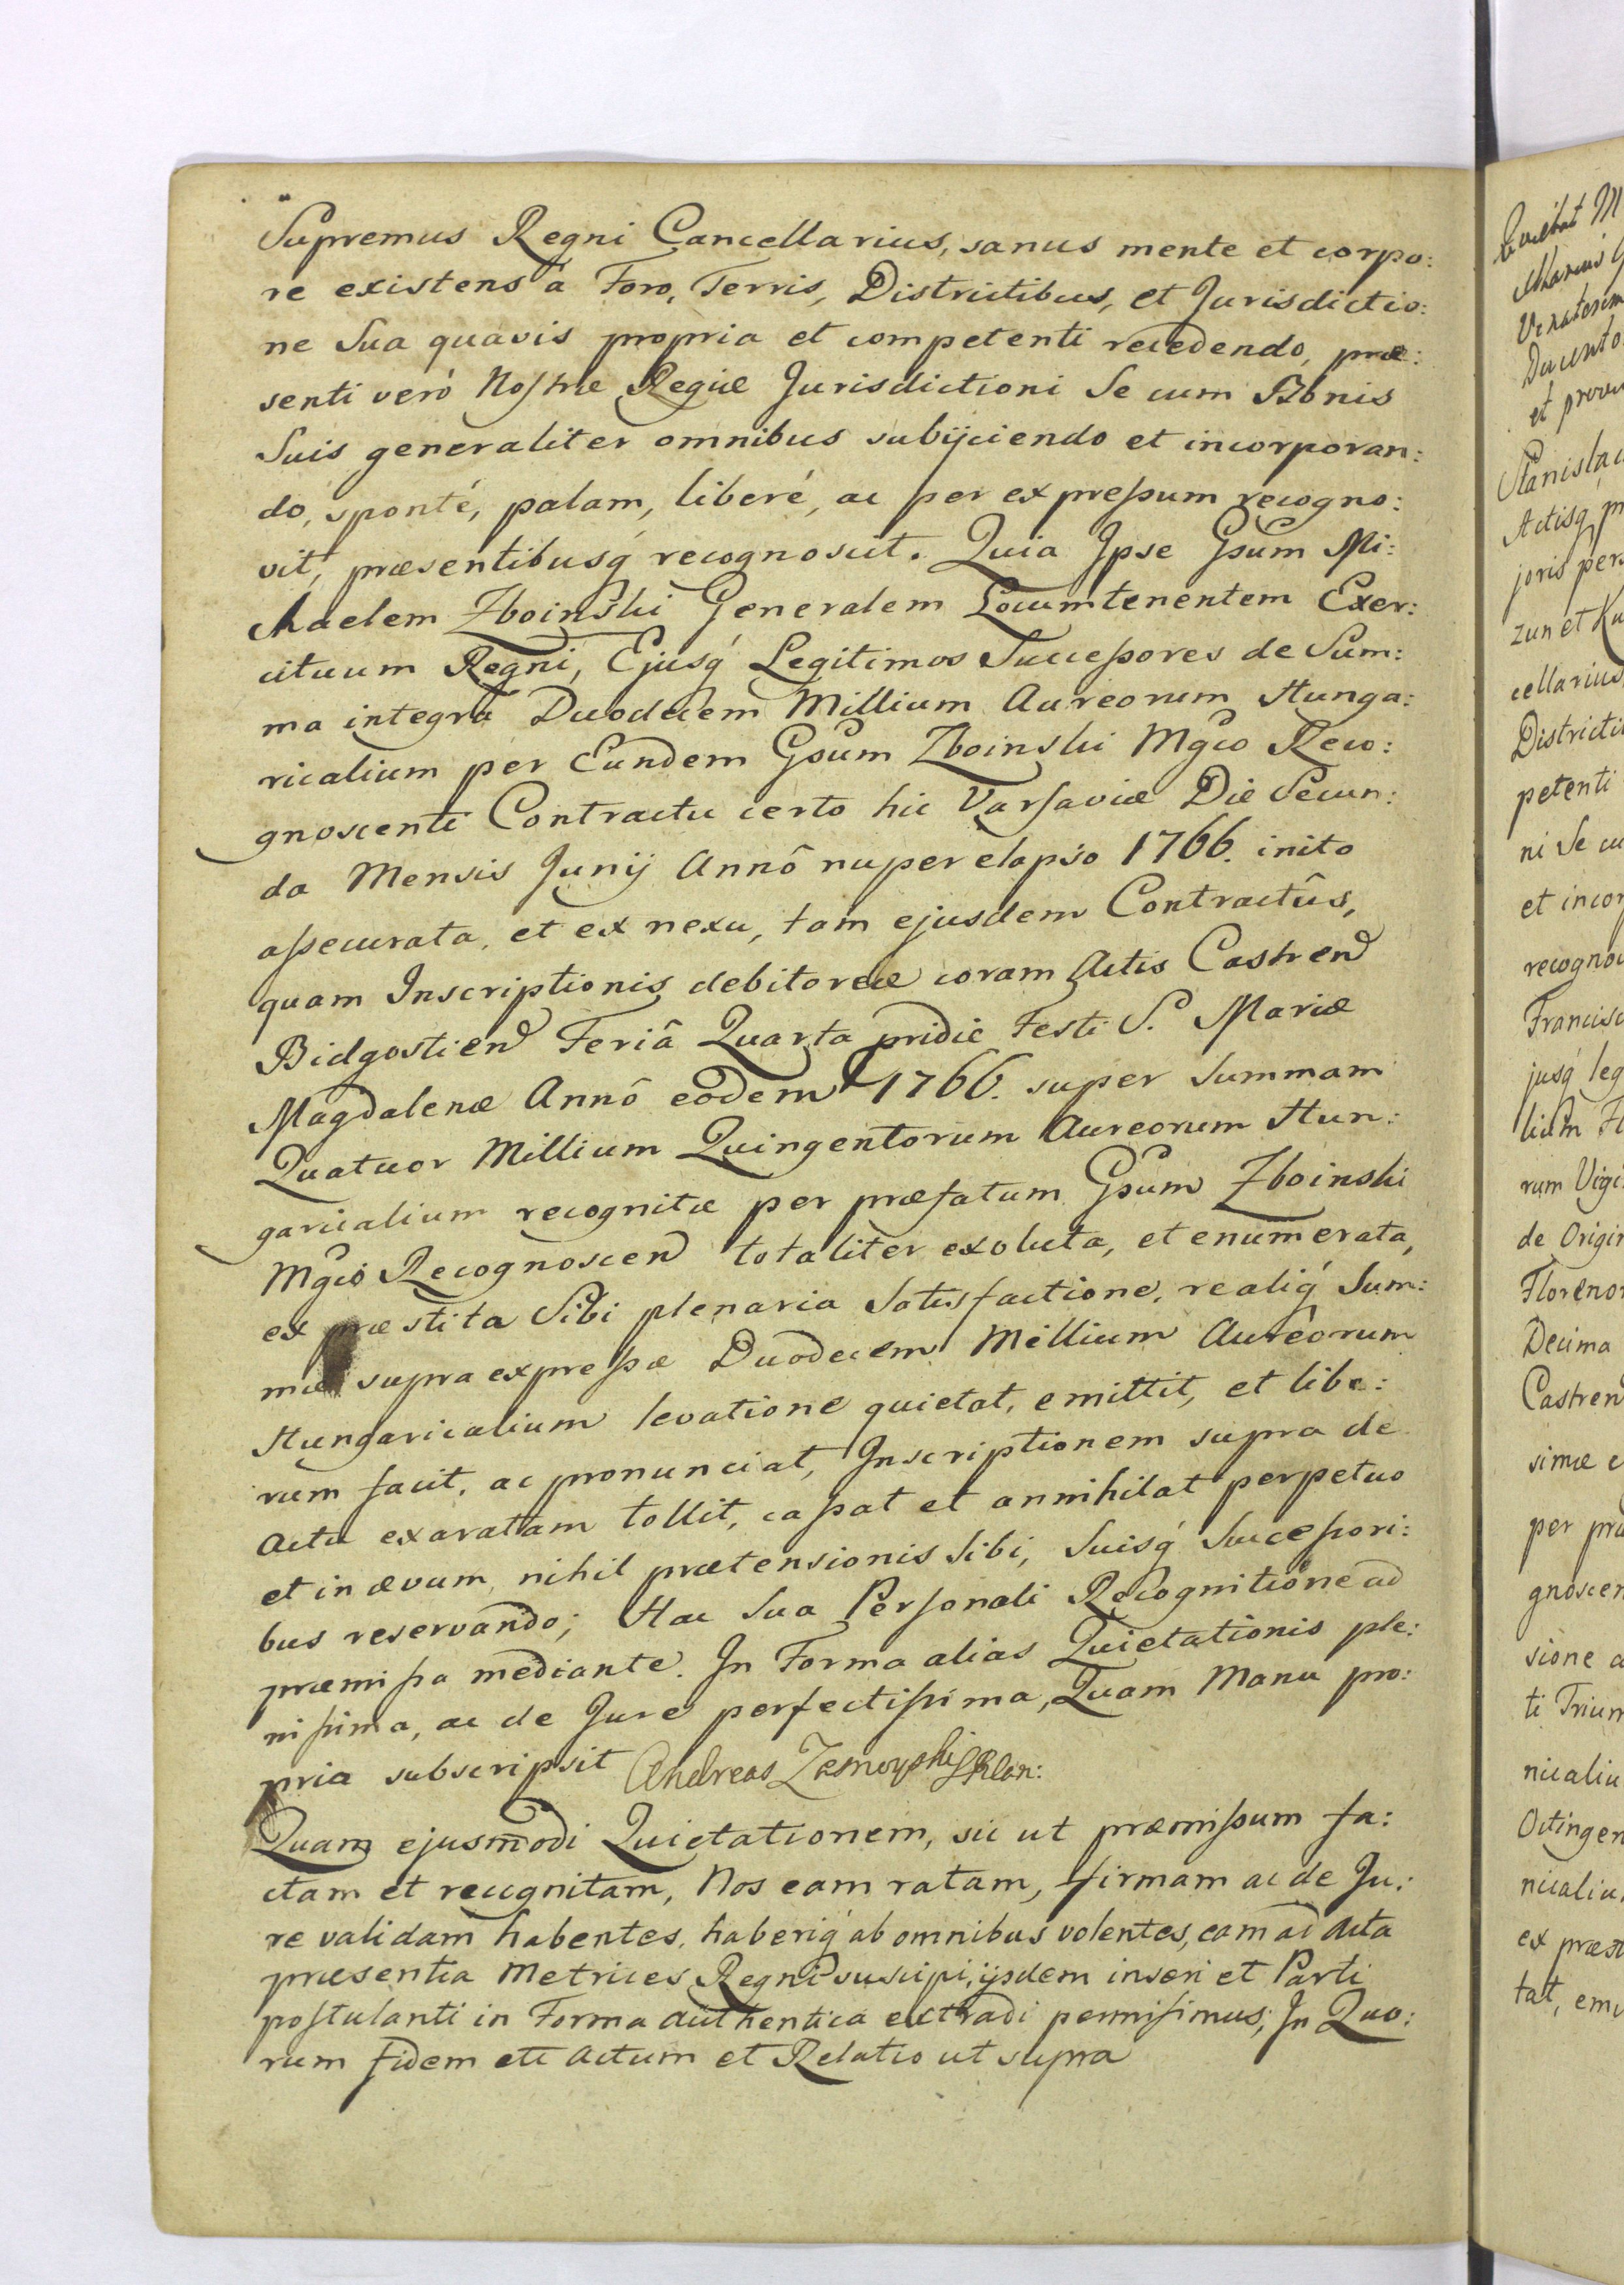 Supremus Regni Cancellarius, sanus mente et corpo:
re existens á Foro, Terris, Districtibus, et Jurisdictio:
ne Sua quavis propria et competenti recedendo, præ:
senti veró Nostræ Regiæ Jurisdictioni Se cum Bonis
Suis generaliter omnibus subijciendo et incorporan:
do, sponté, palam, liberé, ac per expressum recogno:
vit, præsentibusq́ recognoscit. Quia Ipse Gsum Mi:
chaelem Zboinski Generalem Locumtenentem Exer:
cituum Regni, Ejusq́ Legitimos Successores de Sum:
ma integrâ Duodecem Millium Aureorum Hunga:
ricalium per Eundem Gsum Zboinski Mgco Reco:
gnoscenti Contractu certo hic Varsaviæ Die Secun:
da Mensis Junij Annô nuper elapso 1766. inito
assecurata, et ex nexu, tam ejusdem Contractûs,
quam Inscriptionis debitoreæ coram Actis Castren
Bidgostien Feriâ Quarta pridie Festi S. Mariæ
Magdalenæ Annô eodem 1766. super Summam
Quatuor Millium Quingentorum Aureorum Hun:
garicalium recognitæ per præfatum Gsum Zboinski
Mgco Recognoscen totaliter exoluta, et enumerata,
ex præstita Sibi plenaria Satisfactione, realiq́ Sum:
mæ supra expressæ Duodecem Millium Aureorum
Hungaricalium levatione quietat, emittit, et libe:
rum facit, ac pronunciat, Inscriptionem supra de
Actu exaratam tollit, cassat et annihilat perpetuo
et in ævum, nihil prætensionis Sibi, Suisq́ Successori:
bus reservando; Hac Sua Personali Recognitione ad
præmissa mediante. In Forma alias Quietationis ple:
nissima, ac de Jure perfectissima, Quam Manu pro:
pria subscripsit Andreas Zamoyski
Quam ejusmodi Quietationem, sic ut præmissum fa:
ctam et recognitam, Nos eam ratam, firmam ac de Ju:
re validam habentes, haberiq́ ab omnibus volentes, eam ad Acta
præsentia Metrices Regni suscipi, ijsdem inseri et Parti
postulanti in Forma authentica extradi permisimus; In Quo:
rum fidem etc Actum et Relatio ut supra
Stanisla
joris per
zun et Ku
cellarius
Districti
petenti
ni Se cu
et incor
recogno
Francisc
jusq́ leg
rum Vigi
de Origin
Floreno
Decima
Castren
simæ e
per præ
gnoscen
sione a
ti Trium
nicaliu
Octingen
nicaliu
ex præst
tat, emi